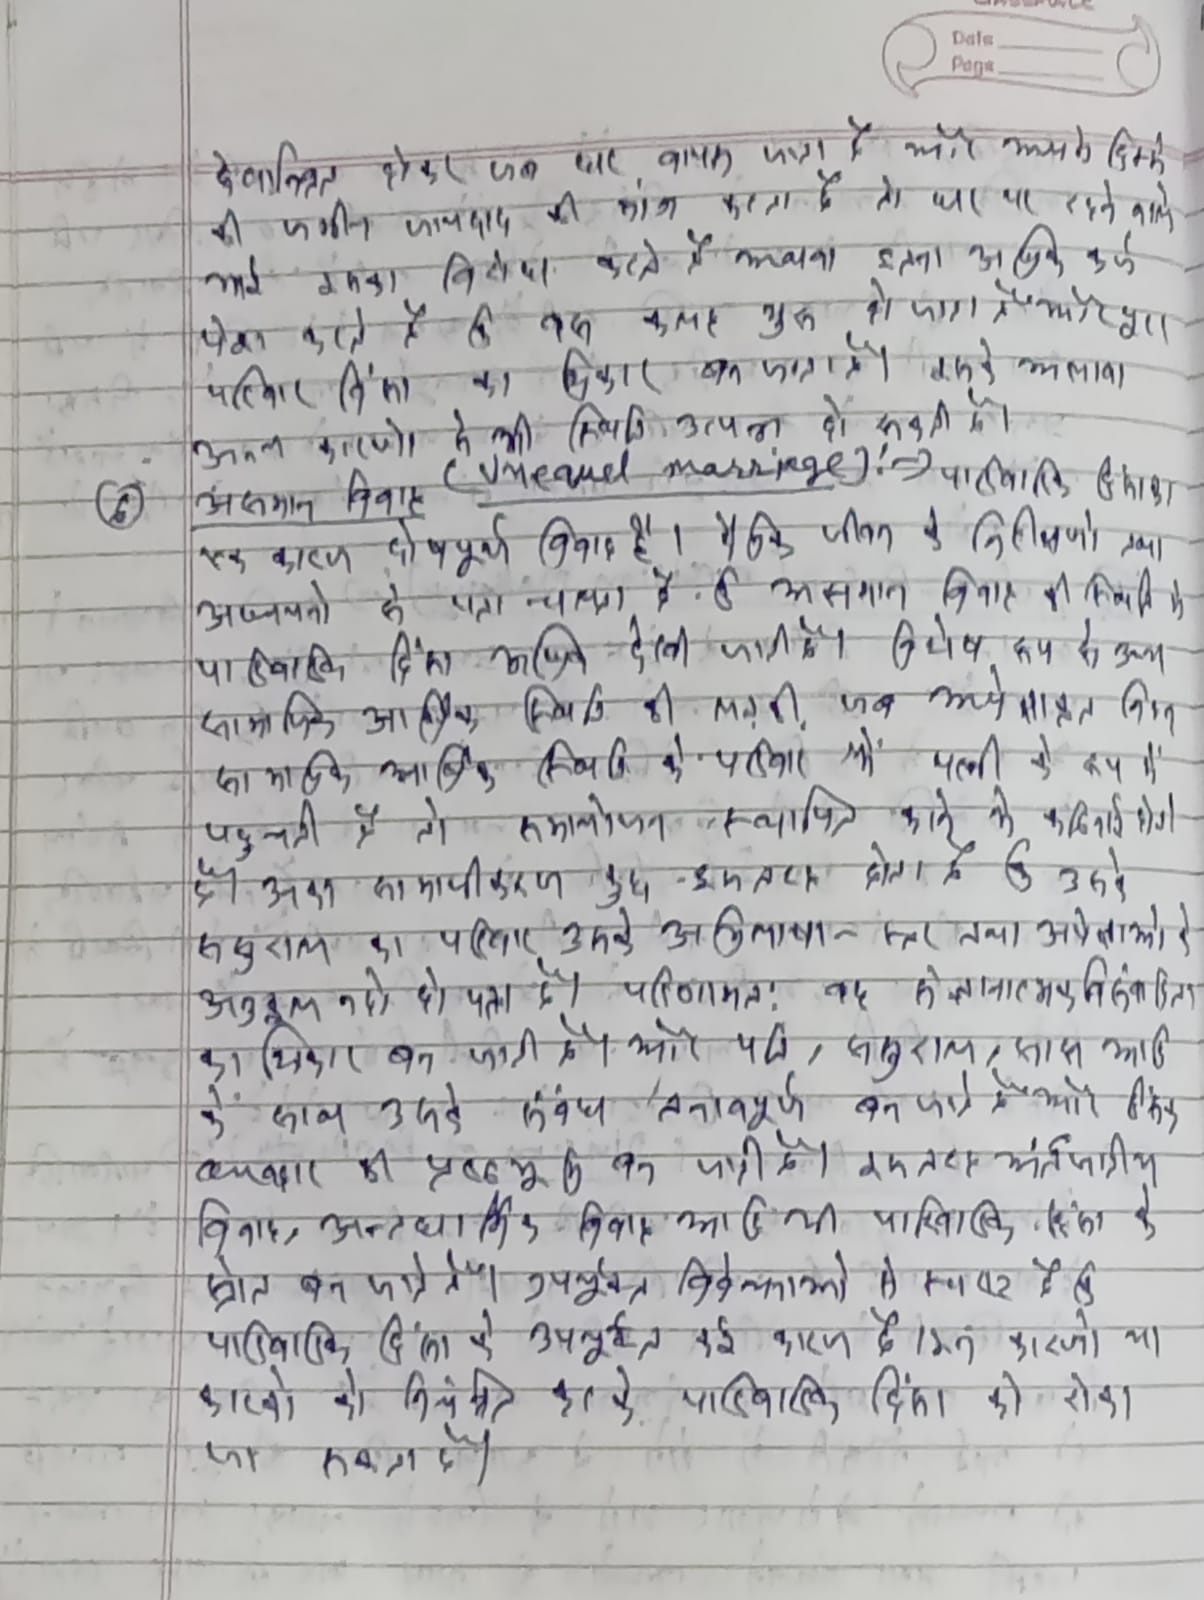 CLASSMATE
Date
Page
होकर जब घर वापस जाता है और अपने हिस्से
की जमीन जायदाद की मांग करता है तो घर पर रहने वाले
भाई इसका विरोध करते हैं अथवा इतना अधिक कर्ज
पेश करते हैं कि वह कलह शुरू हो जाता है और पूरा
परिवार हिंसा का शिकार बन जाता है। इसके अलावा
अन्य कारणों से भी स्थिति उत्पन्न हो सकती है।
⑥ असमान विवाह (Unequel marriage):⇒ पारिवारिक हिंसा का
एक कारण दोषपूर्ण विवाह है। दैनिक जीवन के निरीक्षणों तथा
अध्ययनों से पता चलता है कि असमान विवाह की स्थिति में
पारिवारिक हिंसा अधिक देखी जाती है। विशेष रूप से उच्च
सामाजिक आर्थिक स्थिति की लड़की जब अपेक्षाकृत निम्न
सामाजिक आर्थिक स्थिति के परिवार में पत्नी के रूप में
पहुचती है तो समायोजन स्थापित करने में कठिनाई होती
है। उसका सामाजीकरण कुछ इस तरह होता है कि उसके
ससुराल का परिवार उसके अभिलाषा-स्तर तथा अपेक्षाओं के
अनुकूल नहीं हो पता है। परिणामत: वह संज्ञानात्मक विसंवादिता
का शिकार बन जाती है। और पति, ससुराल, सास आदि
के साथ उसके संबंध तनावपूर्ण बन जाते हैं और हिंसक
व्यवहार की पृष्ठभूमि बन जाती है। इस तरह अंर्तजातीय
विवाह, अन्तधार्मिक विवाह आदि भी पारिवारिक हिंसा के
स्रोत बन जाते हैं। उपर्युक्त विवेचनाओं से स्पष्ट है कि
पारिवारिक हिंसा के उपर्युक्त कई कारण हैं। इन कारणों या
कारकों को नियंत्रित करके पारिवारिक हिंसा को रोका
जा सकता है।